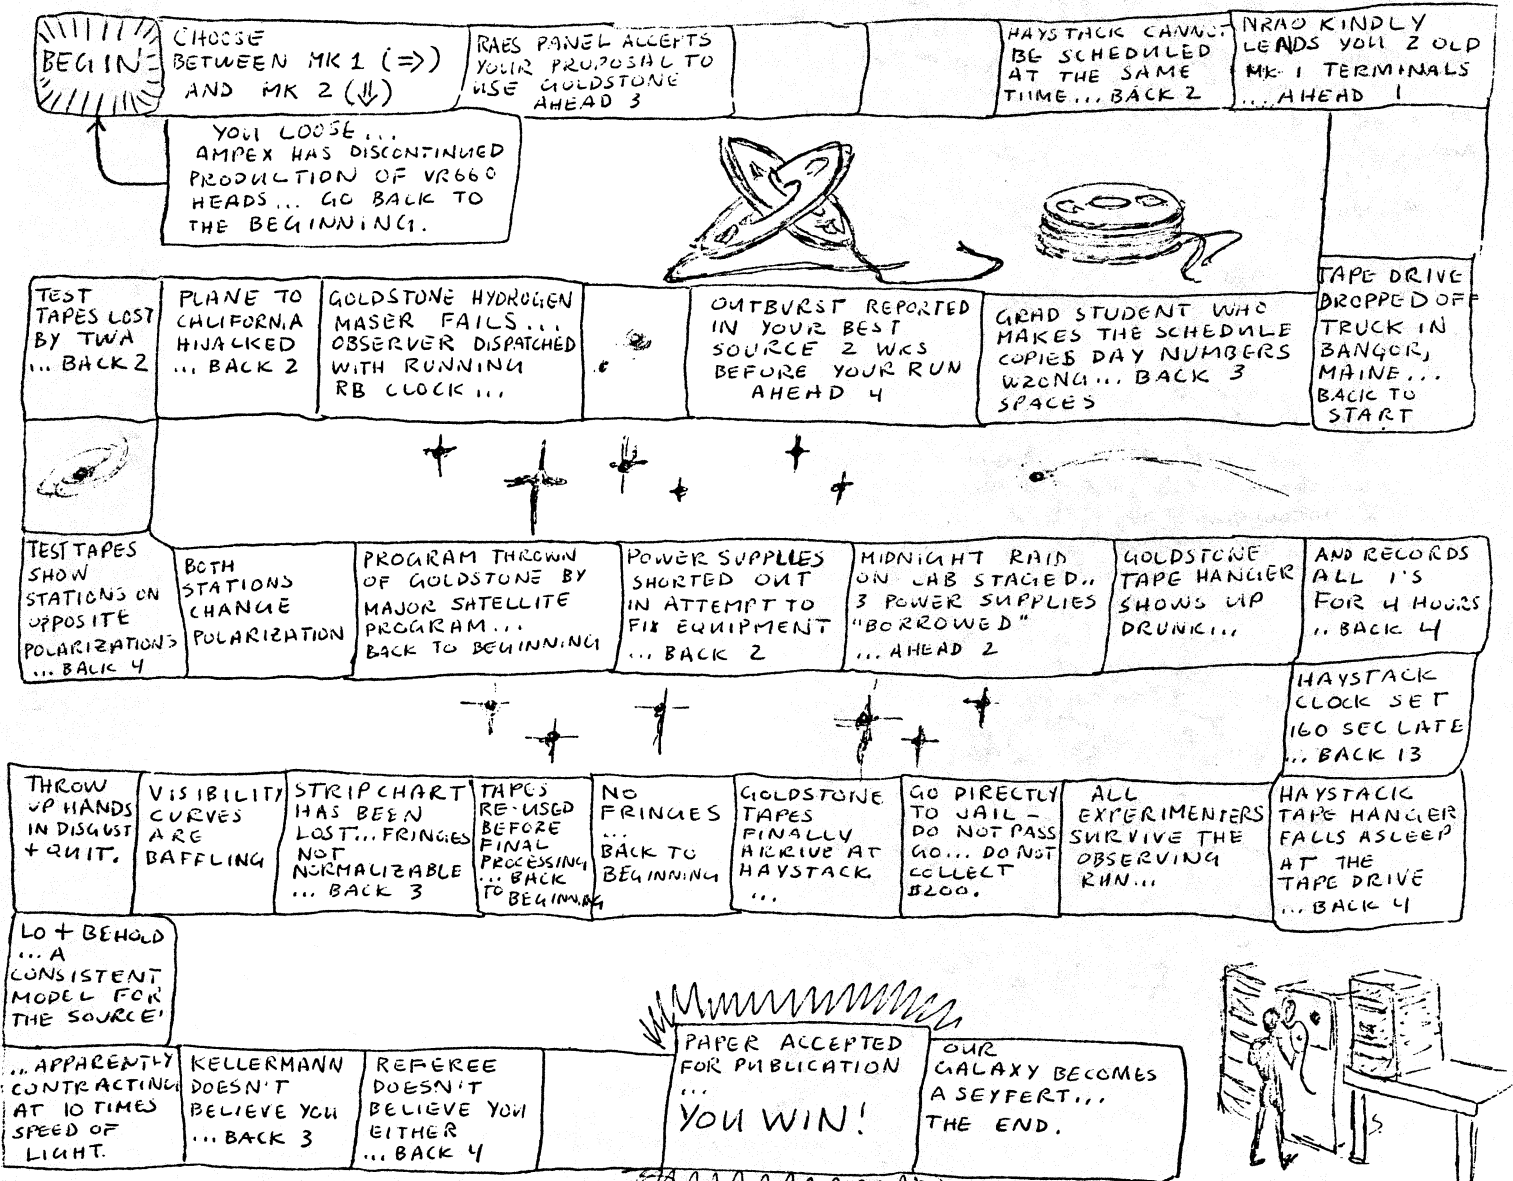 BEGIN
CHOOSE
BETWEEN MK 1 (⇒)
AND MK 2 (⇓)
RAES PANEL ACCEPTS
YOUR PROPOSAL TO
USE GOLDSTONE
AHEAD 3
HAYSTACK CANNOT
BE SCHEDULED
AT THE SAME
TIIME... BACK 2
NRAO KINDLY
LENDS YOU 2 OLD
MK 1 TERMINALS
... AHEAD 1
YOU LOOSE...
AMPEX HAS DISCONTINUED
PRODUCTION OF VR660
HEADS... GO BACK TO
THE BEGINNING.
TAPE DRIVE
DROPPED OFF
TRUCK IN
BANGOR,
MAINE...
BACK TO
START
GRAD STUDENT WHO
MAKES THE SCHEDULE
COPIES DAY NUMBERS
WRONG... BACK 3
SPACES
OUTBURST REPORTED
IN YOUR BEST
SOURCE 2 WKS
BEFORE YOUR RUN
AHEAD 4
GOLDSTONE HYDROGEN
MASER FAILS...
OBSERVER DISPATCHED
WITH RUNNING
RB CLOCK...
PLANE TO
CALIFORNIA
HIJACKED
... BACK 2
TEST
TAPES LOST
BY TWA
... BACK 2
TEST TAPES
SHOW
STATIONS ON
OPPOSITE
POLARIZATIONS
... BACK 4
BOTH
STATIONS
CHANGE
POLARIZATION
PROGRAM THROWN
OF GOLDSTONE BY
MAJOR SATELLITE
PROGRAM...
BACK TO BEGINNING
POWER SUPPLIES
SHORTED OUT
IN ATTEMPT TO
FIX EQUIPMENT
... BACK 2
MIDNIGHT RAID
ON LAB STAGED..
3 POWER SUPPLIES
"BORROWED"
... AHEAD 2
GOLDSTONE
TAPE HANGER
SHOWS UP
DRUNK...
AND RECORDS
ALL 1'S
FOR 4 HOURS
.. BACK 4
HAYSTACK
CLOCK SET
160 SEC LATE
... BACK 13
HAYSTACK
TAPE HANGER
FALLS ASLEEP
AT THE
TAPE DRIVE
... BACK 4
ALL
EXPERIMENTERS
SURVIVE THE
OBSERVING
RUN...
GO DIRECTLY
TO JAIL -
DO NOT PASS
GO... DO NOT
COLLECT
$200.
GOLDSTONE
TAPES
FINALLY
ARRIVE AT
HAYSTACK
...
NO
FRINGES
...
BACK TO
BEGINNING
TAPES
RE-USED
BEFORE
FINAL
PROCESSING
... BACK
TO BEGINNING
STRIP CHART
HAS BEEN
LOST... FRINGES
NOT
NORMALIZABLE
... BACK 3
VISIBILITY
CURVES
ARE
BAFFLING
THROW
UP HANDS
IN DISGUST
+ QUIT.
LO + BEHOLD
... A
CONSISTENT
MODEL FOR
THE SOURCE!
... APPARENTLY
CONTRACTING
AT 10 TIMES
SPEED OF
LIGHT.
KELLERMANN
DOESN'T
BELIEVE YOU
... BACK 3
REFEREE
DOESN'T
BELIEVE YOU
EITHER
... BACK 4
PAPER ACCEPTED
FOR PUBLICATION
...
YOU WIN!
OUR
GALAXY BECOMES
A SEYFERT...
THE END.